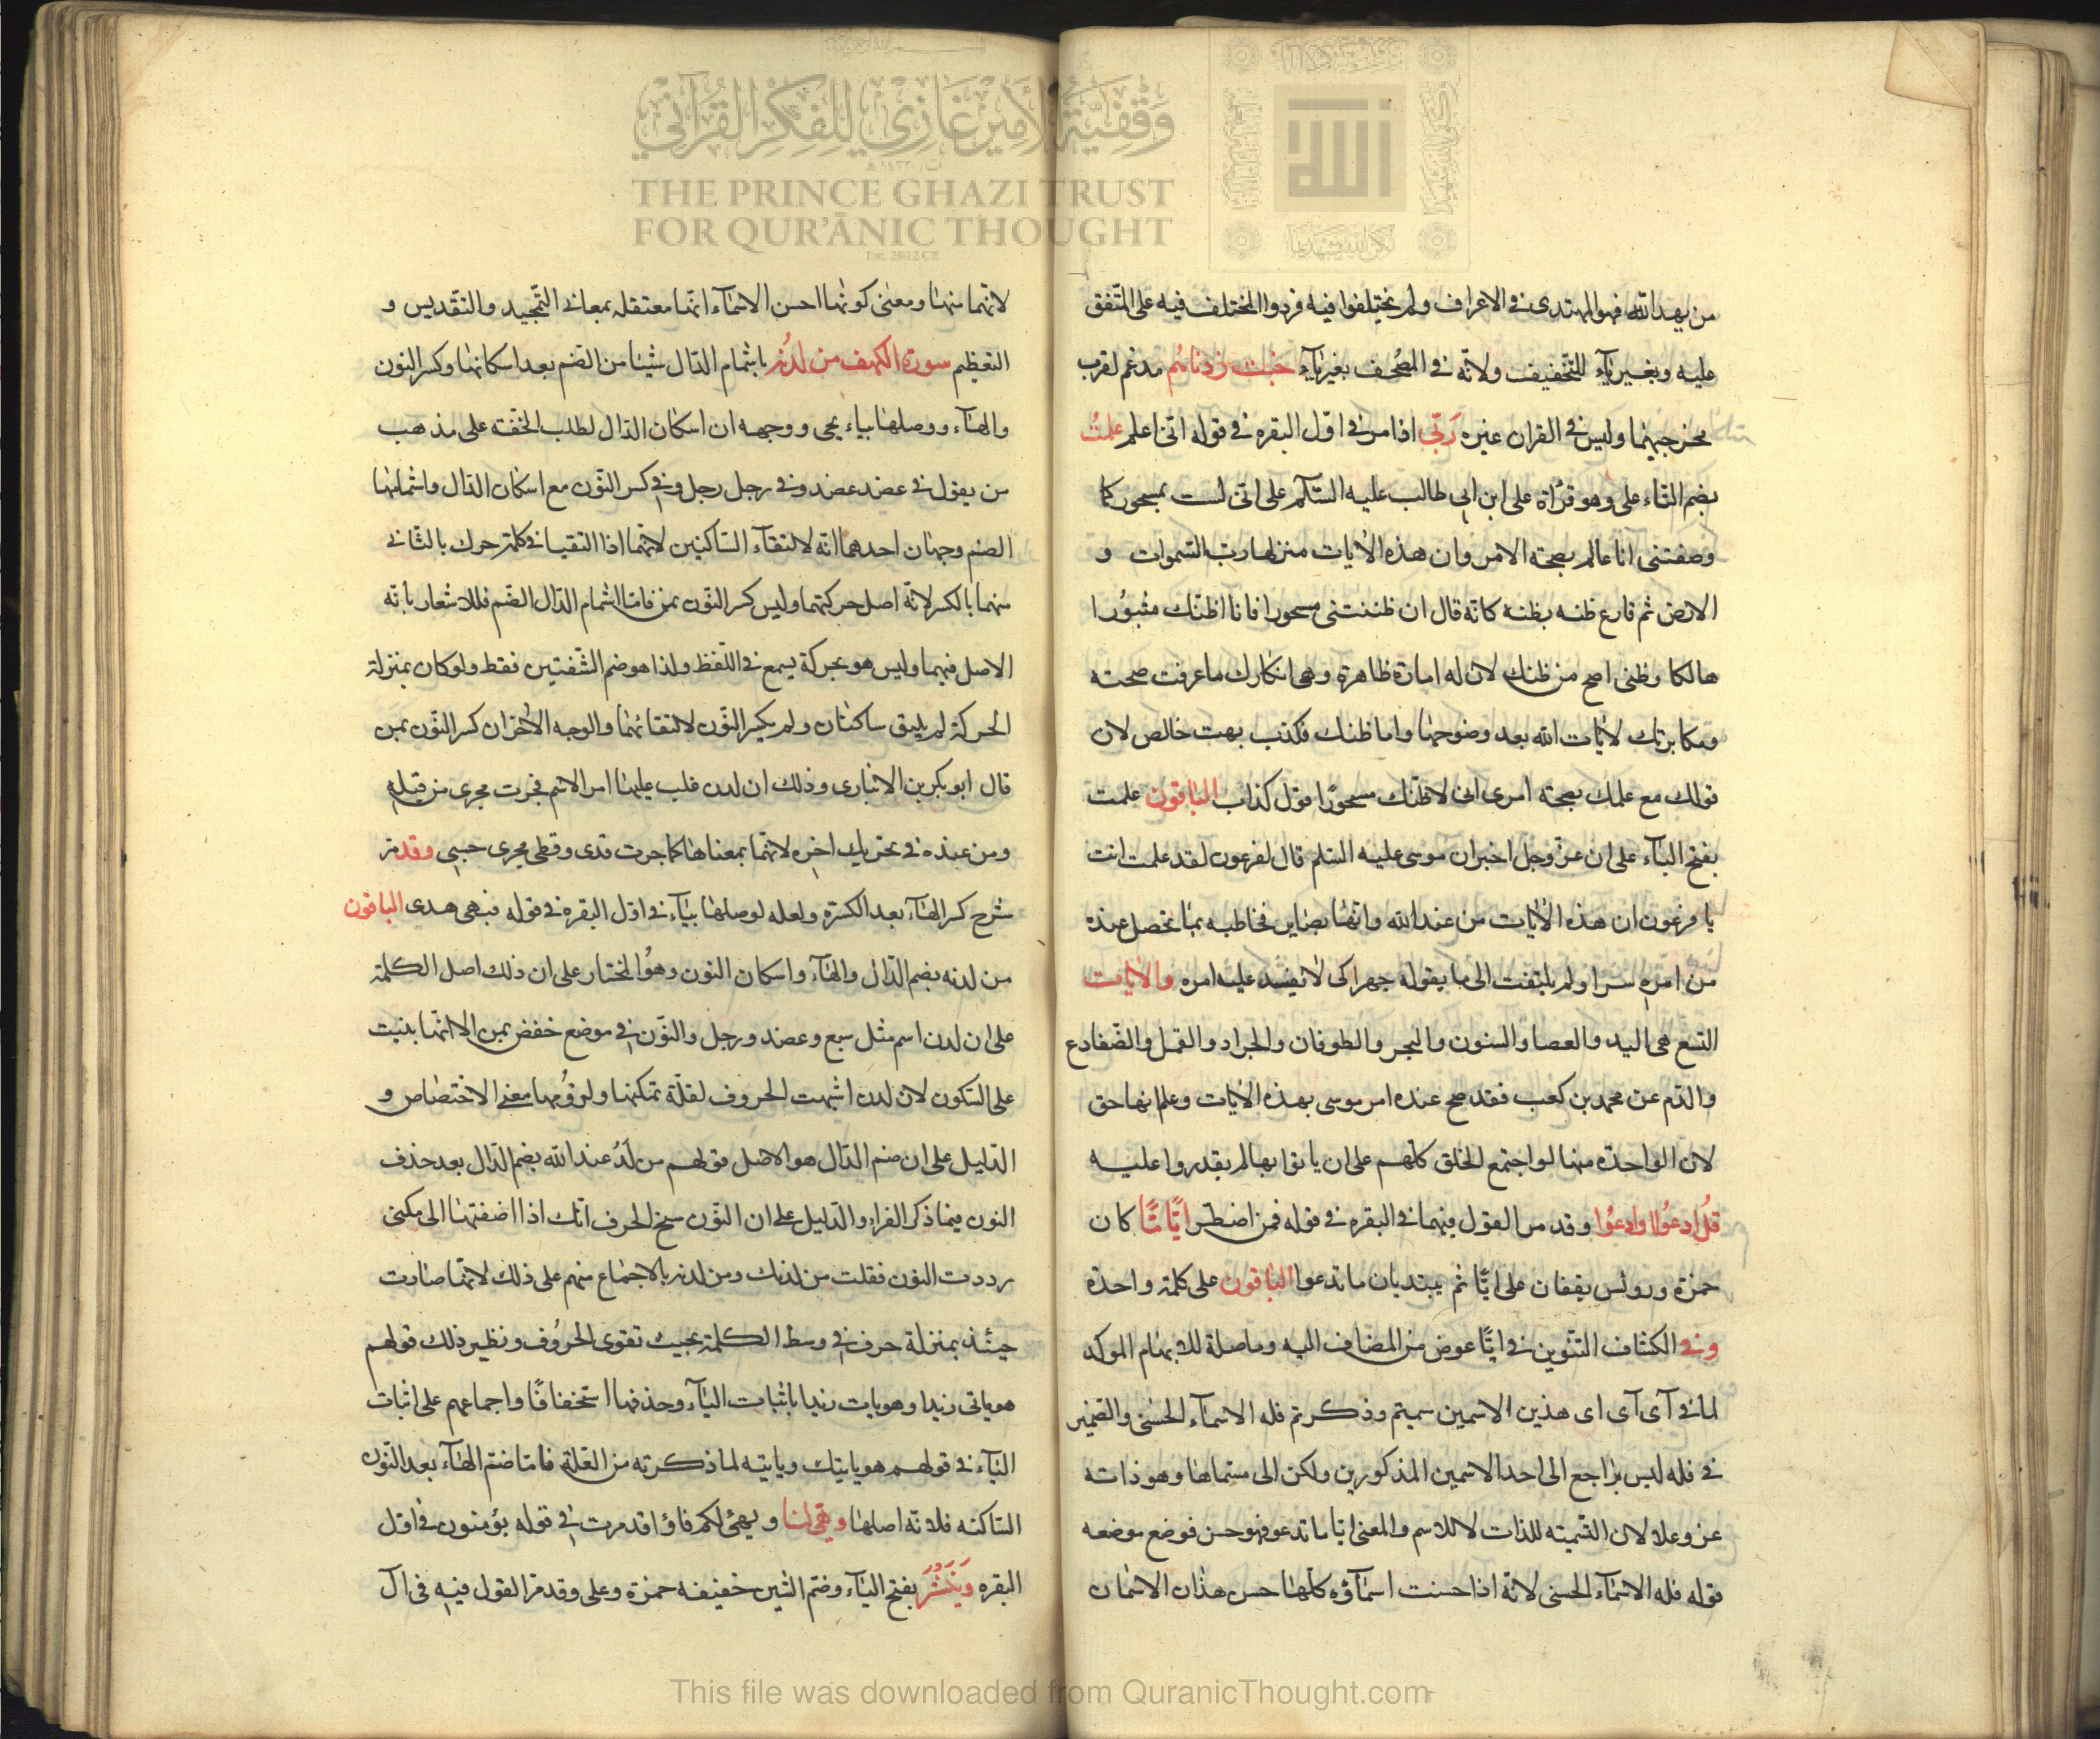 من يهد الله فهو المهتدى فى الاعراف ولم يختلفوا فيه فردوا المختلف فيه على المتفق
عليه وبغير يآء للتخفيف ولانّه فى المصحف بغير يآء خبت زدناهم مدغم لقرب
مخرجيهما وليس فى القران غيره رَبّى اذا مر فى اوّل البقره فى قوله انّى اعلم علمتُ
بضم التاء على وهو قرأة على ابن ابى طالب عليه السّلم على انّى لست بمسحور كما
وصفتنى انا عالم بصحة الامر وان هذه الايات منزلها رب السّموات و
الارض ثم قارع ظنه بظنه كانّه قال ان ظننتنى مسحورا فانا اظنّك مثبورا
هالكا وظنى اصح من ظنك لان له امارة ظاهرة وهى انكارك ما عرفت صحته
ومكابرتك لايات الله بعد وضوحها واما ظنك فكذب بهت خالص لان
قولك مع علمك بصحة امرى انى لاظنّك مسحورًا قول كذاب الباقون علمت
بفتح التآء على ان عزّ وجل اخبر ان موسى عليه السلم قال لفرعون لقد علمت انت
يا فرعون ان هذه الايات من عند الله وانها بصاير فخاطبه بما تحصل عنده
من امره سرا ولم يلتفت الى ما يقوله جهرا كى لا يفسد عليه امره والايات
التسع هى اليد والعصا والسنون والبحر والطوفان والجراد والقمل والضّفادع
والدّم عن محمد بن كعب فقد صح عنده امر موسى بهذه الايات وعلم انها حق
لان الواحدة منها لو اجتمع الخلق كلهم على ان ياتوا بها لم يقدروا عليه
قلُ ادعُوا اوادعُوا وقد مر القول فيهما فى البقره فى قوله فمن اضطر ايًّا مّا كان
حمزة ورويس يقفان على ايًّا ثم يبتديان ما تدعوا الباقون على كلمة واحدة
وفى الكشاف التنوين فى ايًّا عوض من المضاف اليه وما صلة للابهام الموكد
لما فى آى آى اى هذين الاسمين سميتم وذكرتم فله الاسمآء الحسنى والضمير
فى فله ليس براجع الى احد الاسمين المذكورين ولكن الى مسماها وهو ذاته
عز وعلا لان التسميته للذات لا للاسم والمعنى ايّا ما تدعو فهو حسن فوضع موضعه
قوله فله الاسمآء الحسنى لانّه اذا حسنت اسمآؤه كلها حسن هذان الاسمان
لانّهما منها ومعنى كونها احسن الاسمآء انّها معتقله بمعانى التّمجيد والتقديس و
التعظيم سورة الكهف من لدُنهِ باشمام الدّال شيئا من الضم بعد اسكانها وكسر النون
والهآء ووصلها بياء يحى ووجهه ان اسكان الدال لطلب الخفّة على مذهب
من يقول فى عضد عضد وفى رجل رجل وفى كسر النّون مع اسكان الدال واشمامها
الضم وجهان احدهما انّه لالتقآء السّاكنين لانّهما اذا التقيا فى كلمة حرك بالثّانى
منهما بالكسر لانّه اصل حركتهما وليس كسر النّون بمن فامّا اشمام الدّال الضّم فللاشعار بانّه
الاصل فيهما وليس هو بحركة يسمع فى اللّفظ ولذا هو ضم الشّفتين فقط ولو كان بمنزلة
الحركة لم يلتق ساكنان ولم يكسر النّون لالتقائهما والوجه الاخر ان كسر النّون بمن
قال ابو بكر بن الانبارى وذلك ان لدن غلب عليها امر الاسم فجرت مجرى من قبله
ومن عنده فى تحريك اخره لانّها بمعناها كما جرت قدى وقطى مجرى حسبى وقد مر
شرح كسر الهآء بعد الكسرة ولعله لوصلها بيآء فى اول البقره فى قوله فيه هدى الباقون
من لدنه بضم الدّال والهآء واسكان النون وهوُ المختار على ان ذلك اصل الكلمة
على ان لدن اسم مثل سبع وعضد ورجل والنّون فى موضع خفض بمن الا انّها بنيت
على السّكون لان لدن اشبهت الحروف لقلّة تمكنها ولزومها معنى الاختصاص و
الدّليل على ان ضم الدّال هو الاصل قولهم من لَدُ عند الله بضم الدّال بعد حذف
النون فيما ذكر الفراء والدّليل على ان النّون سخ الحرف انّك اذا اضفتها الى مكنى
رددت النون فقلت من لدنك ومن لدنه بالاجماع منهم على ذلك لانّها صارت
حينئذ بمنزلة حرف فى وسط الكلمة بحيث تقوى الحرُوف ونظير ذلك قولهم
هو ياتى زيدا وهو يات زيدا باثبات اليآء وحذفها استخفافًا واجماعهم على اثبات
اليآء فى قولهم هو ياتيك وياتيه لما ذكرته من العّلة فامّا ضمّ الهآء بعد النّون
السّاكنه فلانّه اصلها وهيّئ لنا ويهيئ لكم فاؤا قد مرت فى قوله يؤمنون فى اول
البقره وَيَنشُرَ بفتح اليآء وضم الشين خفيفه حمزة وعلى وقد مرّ القول فيه فى ال
وقفية الأمير غازي للفكر القرآني
THE PRINCE GHAZI TRUST
FOR QUR'ĀNIC THOUGHT
Est. 2012 CE
This file was downloaded from QuranicThought.com